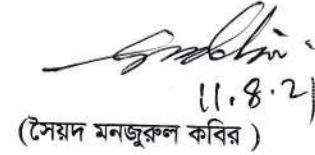 11.8.21
(সৈয়দ মনজুরুল কবির )